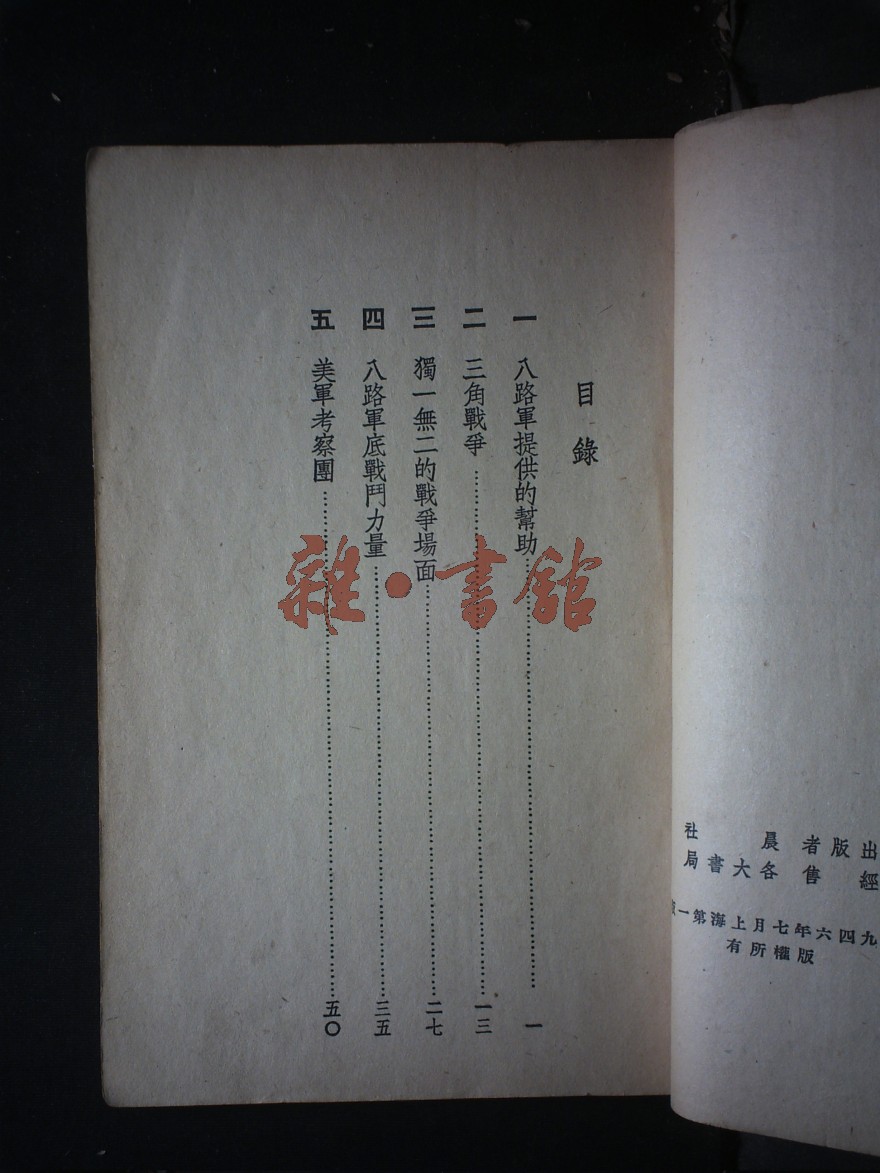 出版者 晨社
經售 各大書局
九四六年七月上海第一
版權所有
目錄
一 八路軍提供的幫助……一
二 三角戰爭……一三
三 獨一無二的戰爭場面……二七
四 八路軍底戰鬥力量……三五
五 美軍考察團……五〇
雜·書館